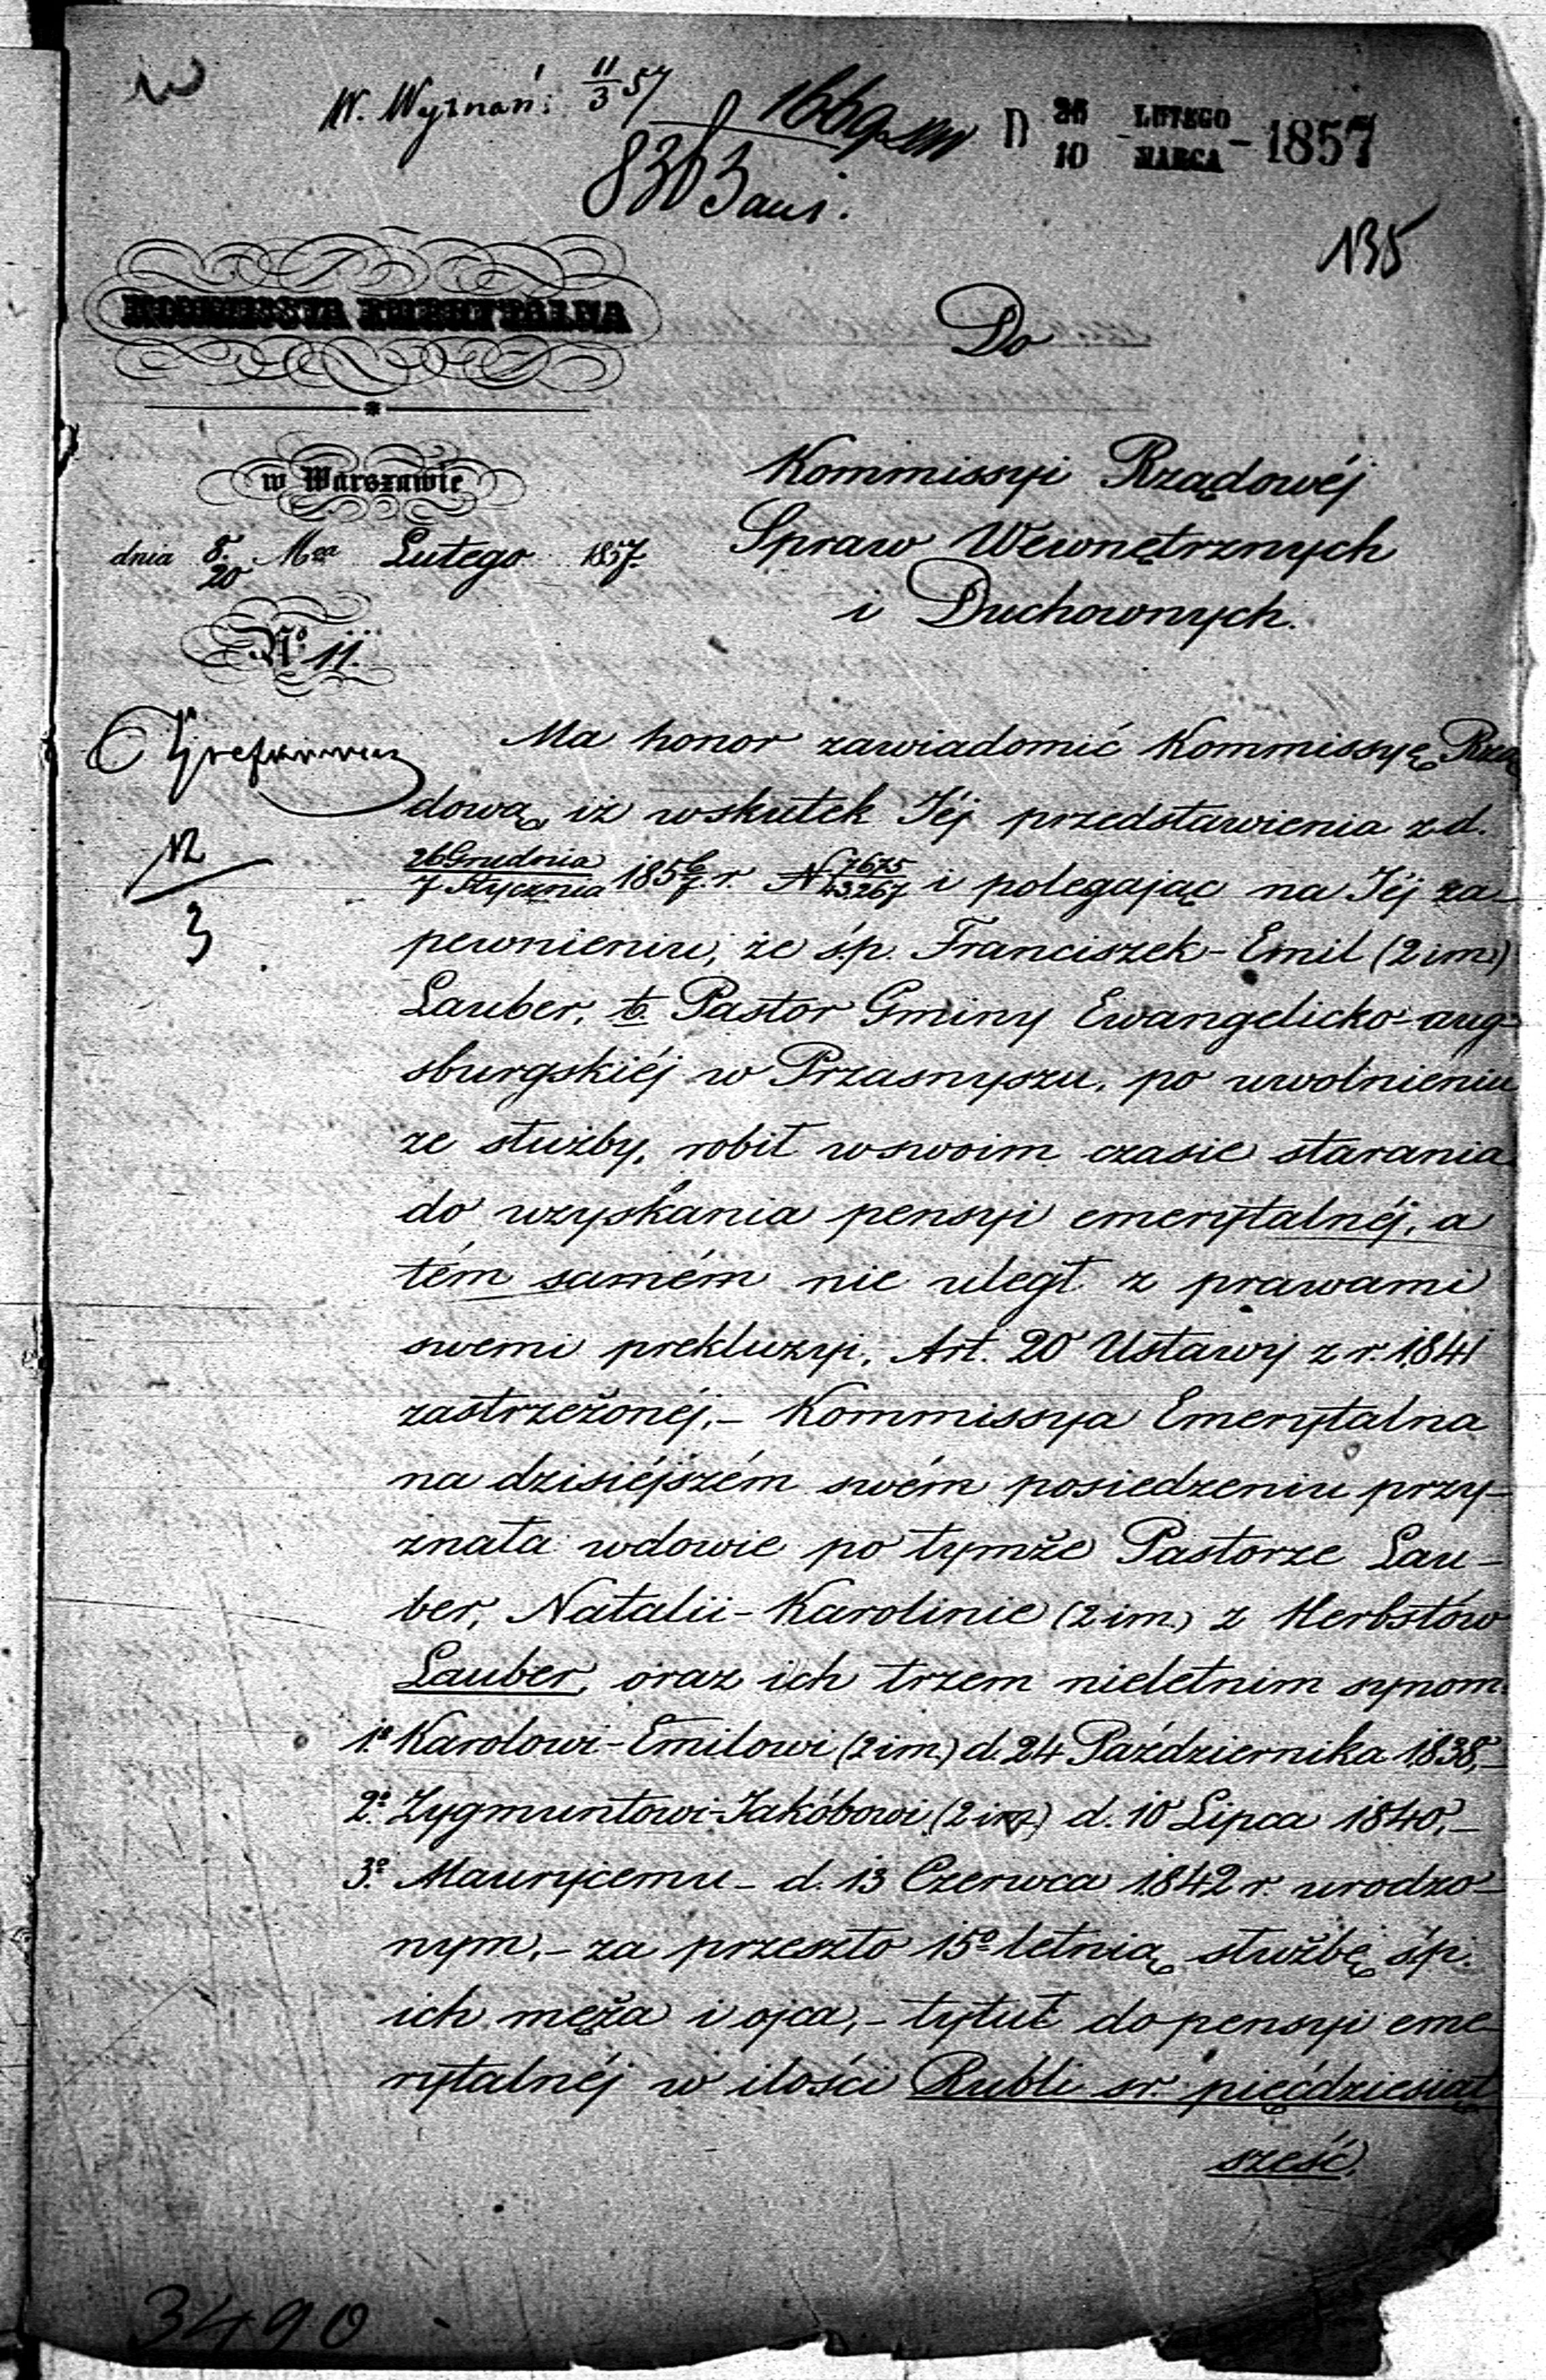 W. Wyznań: 11/3 57
1669
8363
D 26 LUTEGO / 10 MARCA - 1857
135
KOMMISSYA EMERYTALNA
Do
w Warszawie
Kommissyi Rządowéj
dnia 8/20 Mca Lutego 1857.
Spraw Wewnętrznych
i Duchownych.
No 11.
Ma honor zawiadomić Kommissyę Rzą
dową, iż wskutek Jéj przedstawienia z d.
26 Grudnia / 7 Stycznia 1856/7 r. N 7675/43267 i polegając na Jéj za-
pewnieniu, że ś.p. Franciszek-Emil (2 im.)
Lauber, b. Pastor Gminy Ewangelicko-aug-
sburgskiéj w Przasnyszu, po uwolnieniu
ze służby, robił w swoim czasie starania
do uzyskania pensyi emerytalnéj, a
tém samém nie uległ z prawami
swemi prekluzyi, Art. 20 Ustawy z r. 1841
zastrzeżonéj,- Kommissya Emerytalna
na dzisiéjszém swém posiedzeniu przy-
znała wdowie po tymże Pastorze Lau-
ber, Natalii-Karolinie (2 im.) z Herbstów
Lauber, oraz ich trzem nieletnim synom
1o Karolowi-Emilowi (2 im.) d. 24 Października 1838,-
2o Zygmuntowi-Jakóbowi (2 im) d. 10 Lipca 1840,-
3o Maurycemu - d. 13 Czerwca 1842 r. urodzo-
nym,- za przeszło 15o letnią służbę ś.p.
ich męża i ojca,- tytuł do pensyi eme-
rytalnéj w ilości Rubli sr. pięćdziesiąt
sześć,
12/3
3490